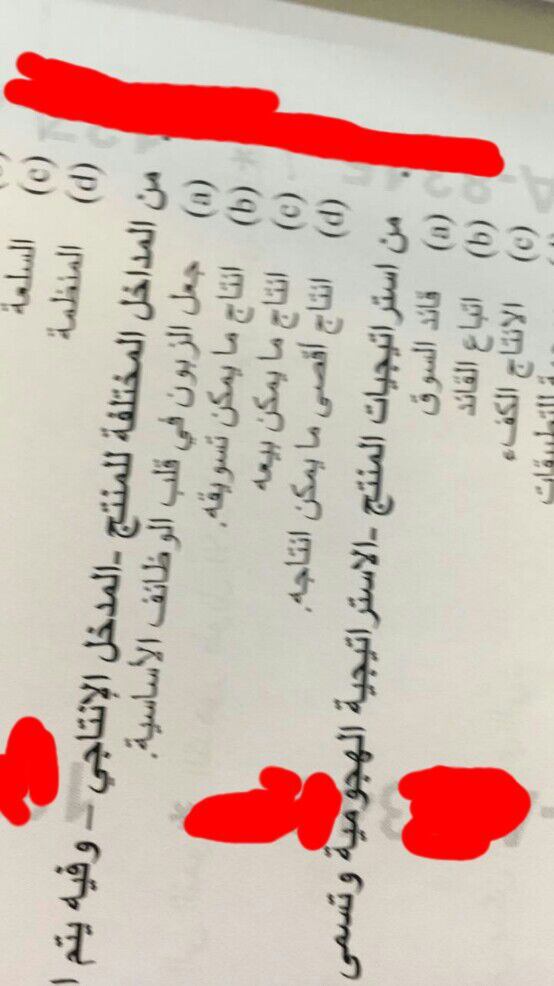 (c) السلعة
(d) المنظمة
من المداخل المختلفة للمنتج -المدخل الإنتاجي – وفيه يتم
(a) جعل الزبون في قلب الوظائف الأساسية.
(b) انتاج ما يمكن تسويقه.
(c) انتاج ما يمكن بيعه
(d) انتاج أقصى ما يمكن انتاجه.
من استراتيجيات المنتج -الاستراتيجية الهجومية وتسمى
(a) قائد السوق
(b) اتباع القائد
(c) الإنتاج الكفء
التطبيقات